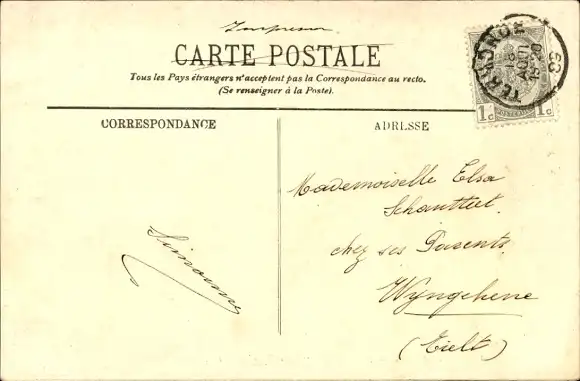 Imprimé
CARTE POSTALE
Tous les Pays étrangers n'acceptent pas la Correspondance au recto.
(Se renseigner à la Poste).
CORRESPONDANCE
ADRESSE
1c 1c
AOUT
Mademoiselle Elsa
chez ses Parents
Wyngehene
(Tielt)
Simonne